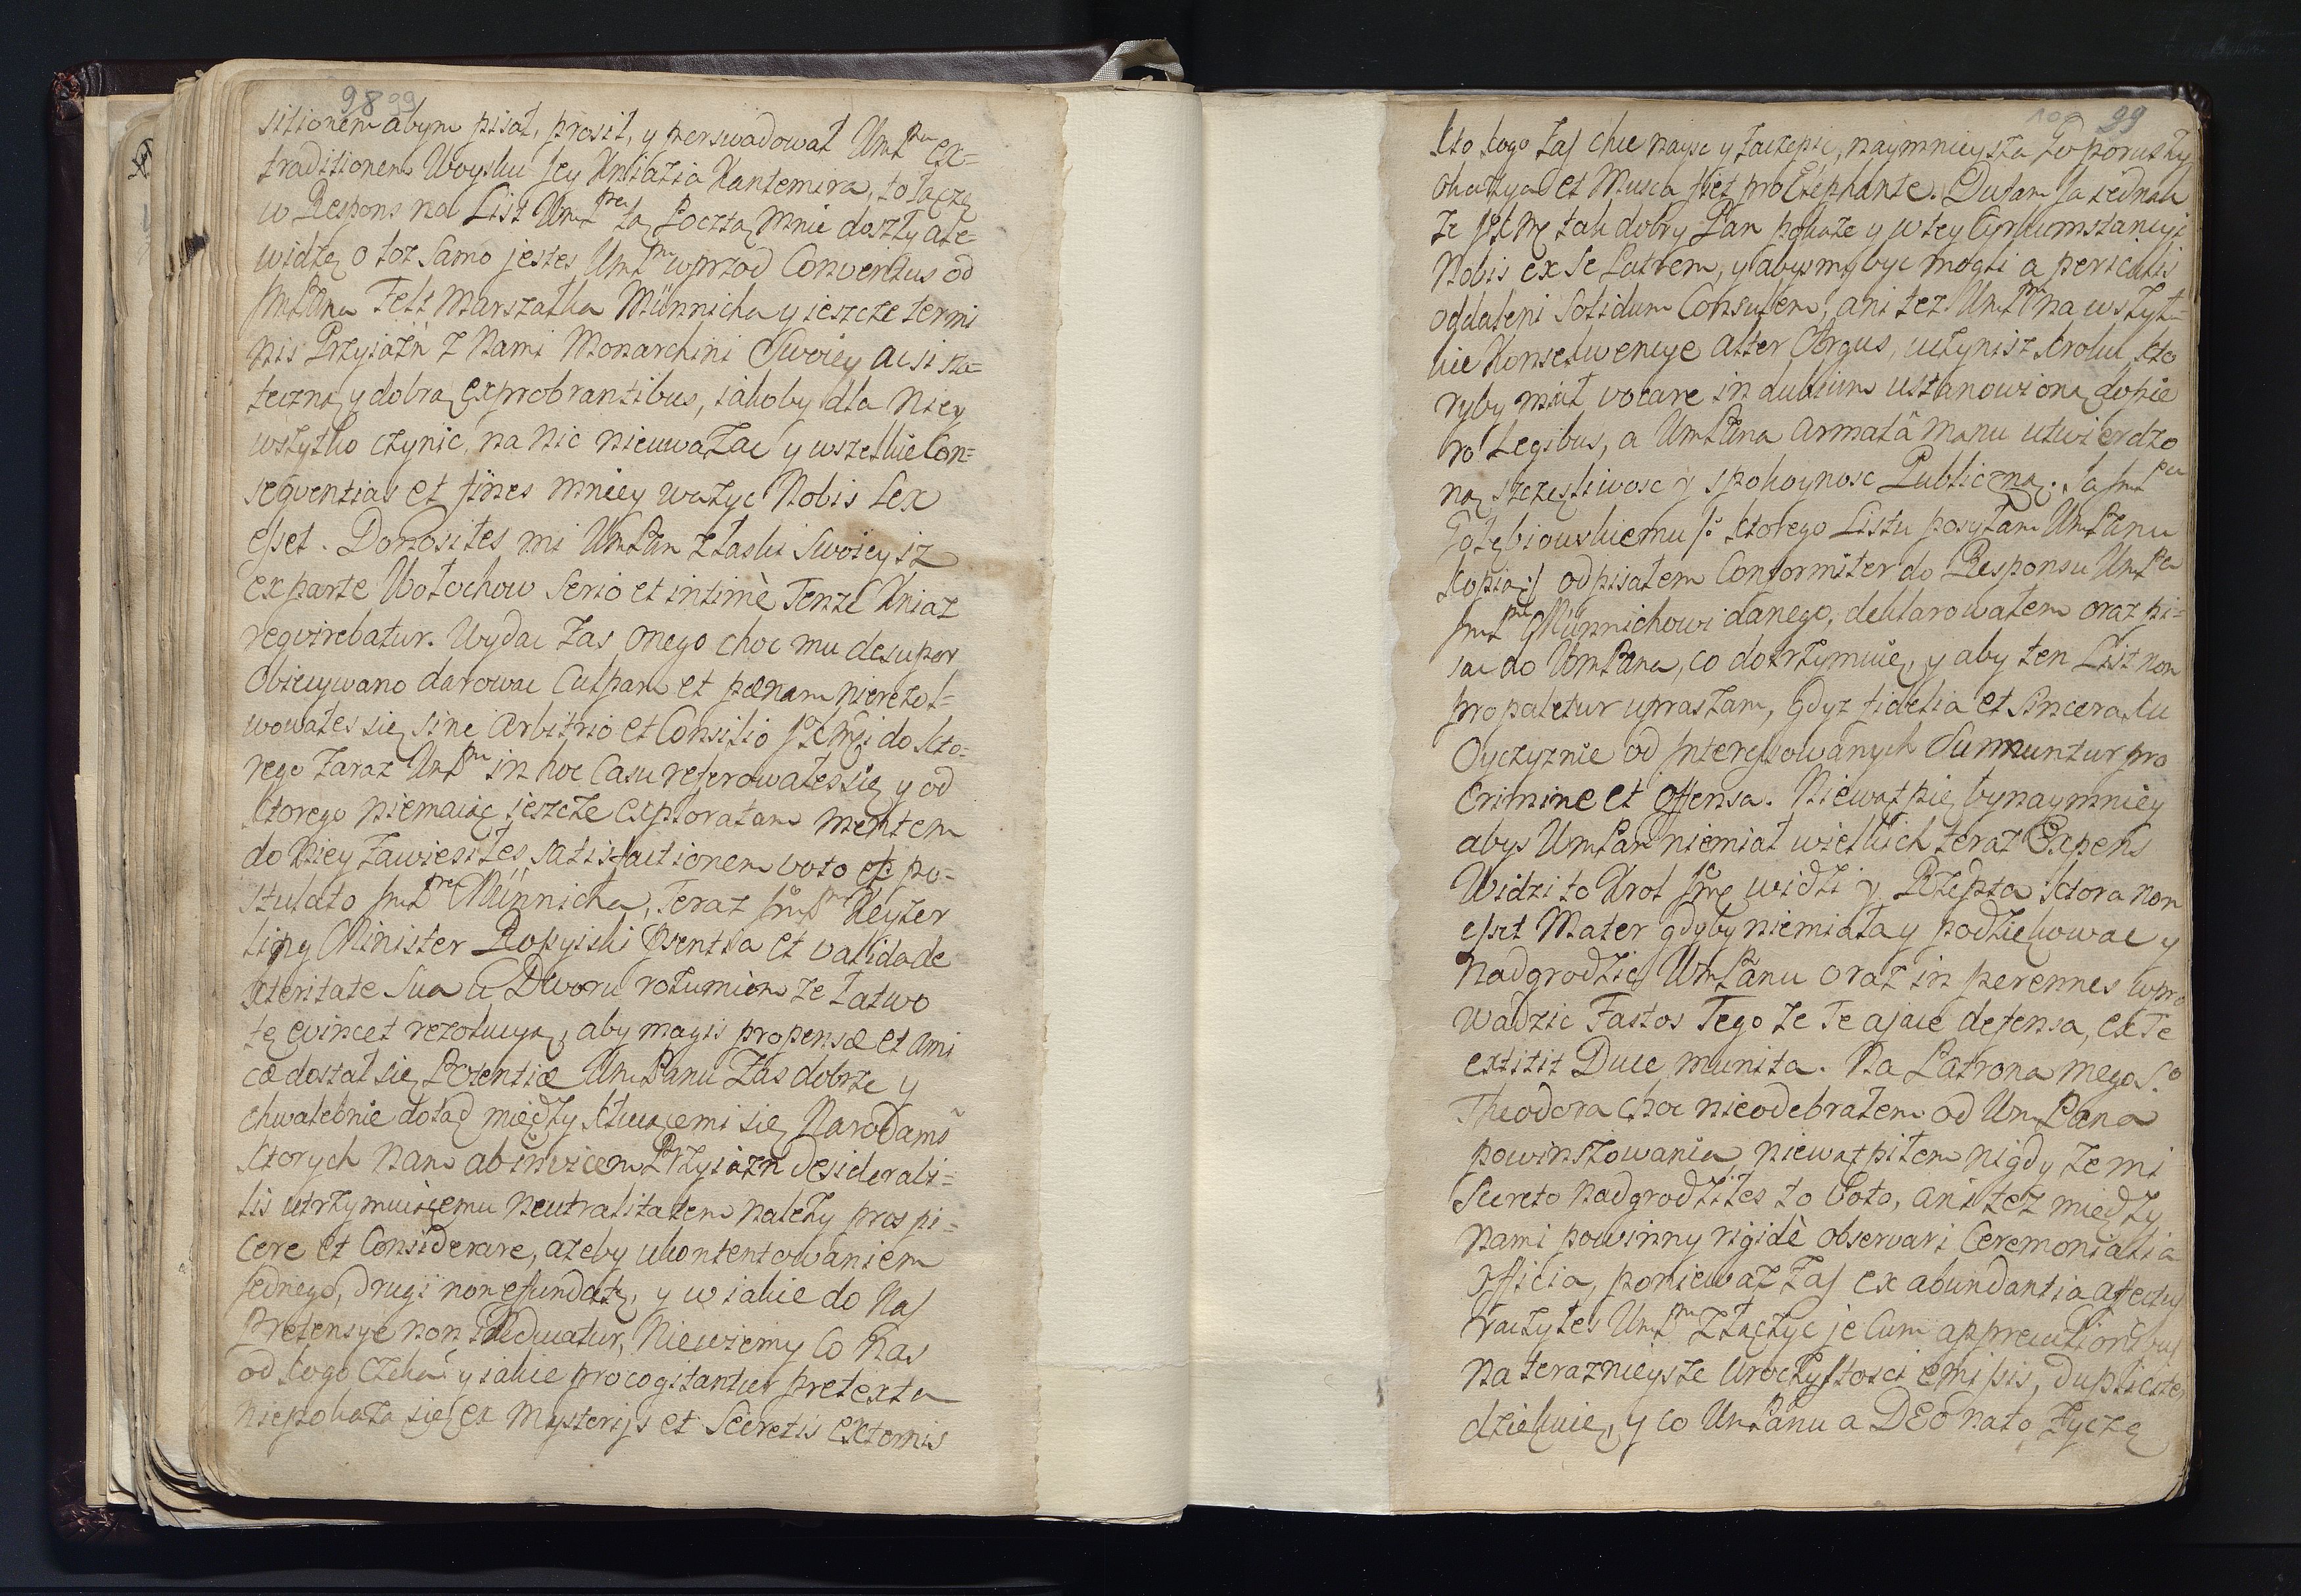 98 99
sitionem abym pisał, prosił, y perswadował UmPna ex=
traditionem Woysku Jey Kniazia Kantemira, to łączę
w Respons na List UmPna tą Pocztą mnie doszły ale
widzę o toż samo jesteś UmPan wprzod Conventus od
JmPana Felt Marszałka Münnicha y ieszcze termi
nis Przyiaźń z Nami Monarchini Swoiey ac si sta=
teczną y dobrą exprobrantibus, iakoby dla Niey
wszytko czynic, na nic nieuważać y wszelkie Con=
seqventias et fines mniey ważyc Nobis Lex
esset. Donosiłes mi UmPan z łaski Swoiey iz
ex parte Wołochow serio et intimè Tenze Kniaz
reqvirebatur. Wydac zas onego choc mu desuper
Obiecywano darowac Culpam et pœnam nierezol=
wowałes się sine Arbitrio et Consilio JKMci do kto=
rego zaraz UmPan in hoc Casu referowałes się y od
ktorego niemaiąc jeszcze exploratam mentem
do Niey zawiesiłes satisfactionem voto et po=
stulato JmPna Münnicha, Teraz JmPan Keyzer
ling Minister Rossyiski Psentia et valida de
xteritate Sua u Dworu rozumiem ze łatwo
tę evincet rezolucyą, aby magis propensæ et ami
cæ dostał się Potentiæ UmPanu Zas dobrze y
chwalebnie dotąd między kłucącemi się Narodami
ktorych nam ab invicem Przyiazn desiderabi=
lis utrzymuiącemu neutralitatem należy prospi=
cere et Considerare, azeby ukontentowaniem
jednego, drugi non effundatę, y w iakie do Nas
Pretensye non inducatur, Niewiemy co Nas
od kogo czeka y iakie procogitantur pretexta
niepokaza się ex Mysterijs et Secretis externis
100 99
kto kogo zas chce naysc y zaczepic, naymnieysza go poruszy
okazya et Musca fiet pro Elephante. Dufam Ja iednak
ze JKMc tak dobry Pan pokaze y w tey Cyrkumstancyi
Nobis ex se Patrem, y abysmy byc mogli a periculis
oddaleni solidum Consulem, ani tez UmPan na wszyt=
kie Konsekwencye alter Argus uczynisz kroku kto
ryby miał vocare in dubium ustanowioną dopie
ro Legibus, a UmPana armatâ manu utwierdzo
ną szczęsliwosc y spokoynosc Publiczną. Ja JmPanu
Gołębiowskiemu /: ktorego Listu posyłam UmPanu
kopią :/ odpisałem Conformiter do Responsu UmPna
JmPnu Münnichowi danego, deklarowałem oraz pi=
sac do UmPana, co dotrzymuię, y aby ten List non
propaletur upraszam, Gdyz fidelia et sincera ku
Oyczyznie od Interessowanych Sumuntur pro
Crimine et offensa. Niewątpię bynaymniey
abys UmPan niemiał wielkich teraz Expens
Widzi to Krol Jmc widzi y Rzepta ktora non
esset Mater gdyby niemiała y podziękowac y
nadgrodzic UmPanu oraz in perennes wpro
wadzic Fastos Tego ze Te ajace defensa, et Te
extitit Duce munita. Na Patrona mego S.o
Theodora choc nieodebrałem od UmPana
powinszowania, niewątpiłem nigdy ze mi
Secreto nadgrodziłes to Voto, ani tez między
nami powinny rigidè observari Ceremonialia
officia, poniewaz zas ex abundantia affectus
raczyłes UmPan złączyc je Cum apprecationibus
na teraznieysze Uroczystosci emissis, dupliciter
dziękuię, y co UmPanu a DEO Nato zyczę